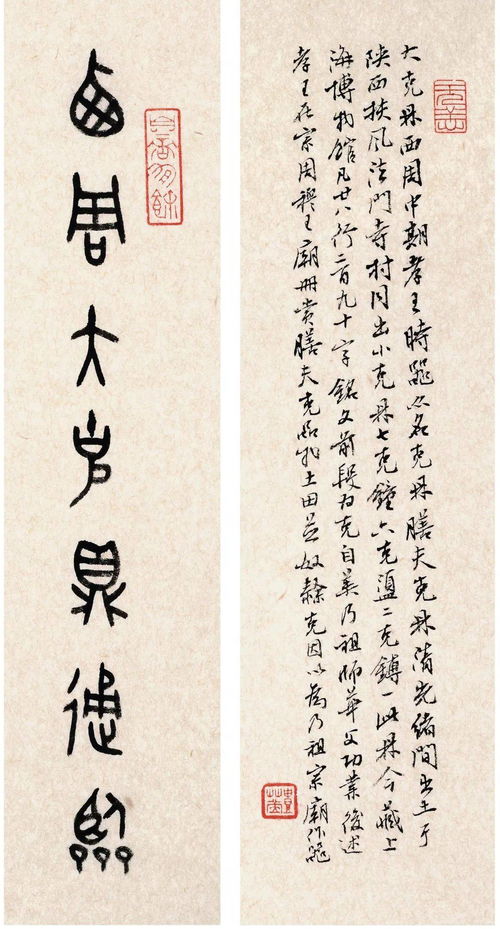 西周大克鼎
大克鼎西周中期孝王時器亦名克鼎膳夫克鼎清光緒間出土于
陝西扶風法門寺村同出小克鼎七克鐘六克盨二克鎛一此鼎今藏上
海博物館凡廿八行二百九十字銘文前段為克自美乃祖師華父功業後述
孝王在宗周穆王廟冊賞膳夫克土田並奴隸克因以為乃祖宗廟作器